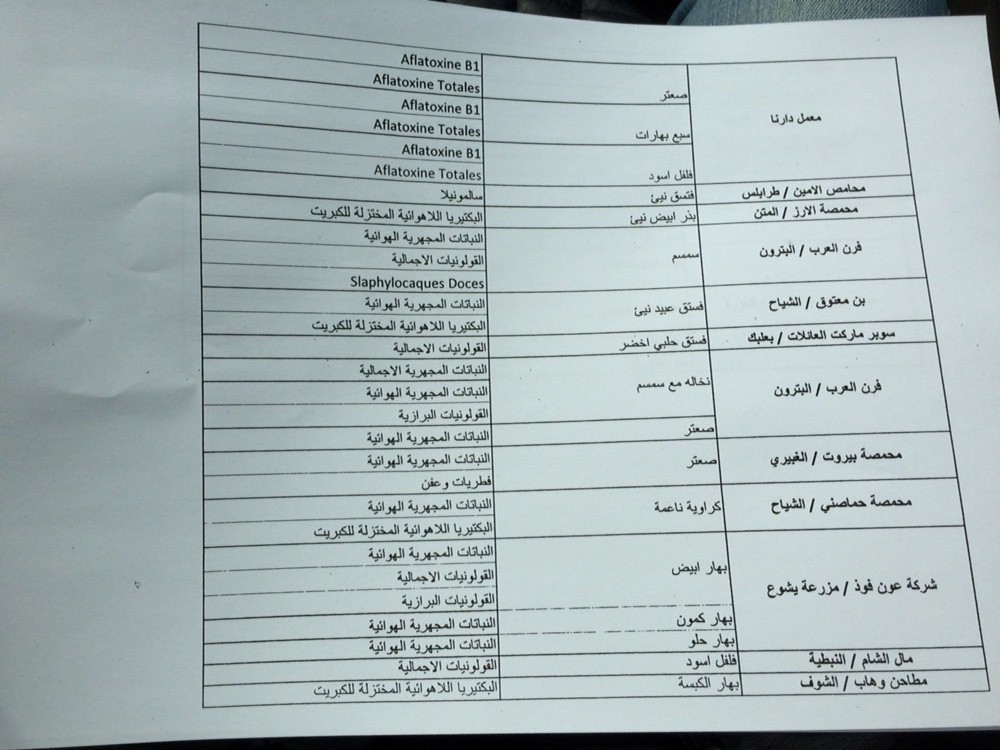 Aflatoxine B1
معمل دارنا صعتر Aflatoxine Totales
Aflatoxine B1
سبع بهارات Aflatoxine Totales
Aflatoxine B1
فلفل اسود Aflatoxine Totales
محامص الامين / طرابلس فتسق نيئ سالمونيلا
محمصة الارز / المتن بذر ابيض نيئ البكتيريا اللاهوائية المختزلة للكبريت
فرن العرب / البترون سمسم النباتات المجهرية الهوائية
القولونيات الاجمالية
Slaphylocaques Doces
بن معتوق / الشياح فستق عبيد نيئ النباتات المجهرية الهوائية
البكتيريا اللاهوائية المختزلة للكبريت
سوبر ماركت العائلات / بعلبك فستق حلبي اخضر القولونيات الاجمالية
فرن العرب / البترون نخاله مع سمسم النباتات المجهرية الاجمالية
النباتات المجهرية الهوائية
القولونيات البرازية
صعتر النباتات المجهرية الهوائية
محمصة بيروت / الغبيري صعتر النباتات المجهرية الهوائية
فطريات وعفن
محمصة حماصني / الشياح كراوية ناعمة النباتات المجهرية الهوائية
البكتيريا اللاهوائية المختزلة للكبريت
شركة عون فوذ / مزرعة يشوع بهار ابيض النباتات المجهرية الهوائية
القولونيات الاجمالية
القولونيات البرازية
بهار كمون النباتات المجهرية الهوائية
بهار حلو النباتات المجهرية الهوائية
مال الشام / النبطية فلفل اسود القولونيات الاجمالية
مطاحن وهاب / الشوف بهار الكبسة البكتيريا اللاهوائية المختزلة للكبريت